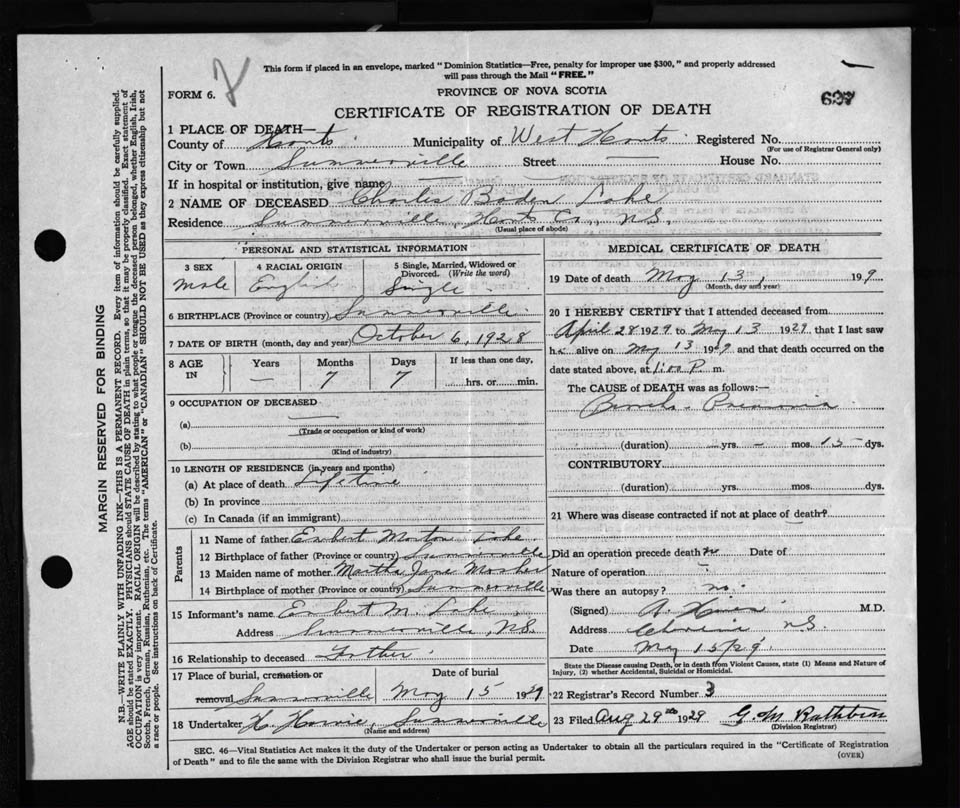 This form if placed in an envelope, marked "Dominion Statistics—Free, penalty for improper use $300," and properly addressed
will pass through the Mail "FREE."
FORM 6.
PROVINCE OF NOVA SCOTIA
CERTIFICATE OF REGISTRATION OF DEATH
627
1 PLACE OF DEATH—
County of Hants Municipality of West Hants Registered No.
(For use of Registrar General only)
City or Town Summerville Street — House No.
If in hospital or institution, give name
2 NAME OF DECEASED Charles Boden Lake
Residence Summerville, Hants Co., N.S.
(Usual place of abode)
PERSONAL AND STATISTICAL INFORMATION
3 SEX Male
4 RACIAL ORIGIN English
5 Single, Married, Widowed or Divorced. (Write the word) Single
6 BIRTHPLACE (Province or country) Summerville
7 DATE OF BIRTH (month, day and year) October 6, 1928
8 AGE IN Years — Months 7 Days 7 If less than one day, hrs. or min.
9 OCCUPATION OF DECEASED
(a) —
(Trade or occupation or kind of work)
(b)
(Kind of industry)
10 LENGTH OF RESIDENCE (in years and months)
(a) At place of death Lifetime
(b) In province
(c) In Canada (if an immigrant)
Parents
11 Name of father Enbert Morton Lake
12 Birthplace of father (Province or country) Summerville
13 Maiden name of mother Martha Jane Mosher
14 Birthplace of mother (Province or country) Summerville
15 Informant's name Enbert M. Lake
Address Summerville, N.S.
16 Relationship to deceased Father
17 Place of burial, cremation or removal Summerville Date of burial May 15 1929
18 Undertaker H. Harvie, Summerville
(Name and address)
MEDICAL CERTIFICATE OF DEATH
19 Date of death May 13, 1929
(Month, day and year)
20 I HEREBY CERTIFY that I attended deceased from
April 28 1929 to May 13 1929 that I last saw
h alive on May 13 1929 and that death occurred on the
date stated above, at 1:00 P. m.
The CAUSE of DEATH was as follows:—
(duration) – yrs. – mos. 15 dys.
CONTRIBUTORY
(duration) yrs. mos. dys.
21 Where was disease contracted if not at place of death?
Did an operation precede death no Date of
Nature of operation —
Was there an autopsy? no.
(Signed) M.D.
Address N.S.
Date May 15/29
State the Disease causing Death, or in death from Violent Causes, state (1) Means and Nature of
Injury, (2) whether Accidental, Suicidal or Homicidal.
22 Registrar's Record Number 3
23 Filed Aug 29th 1929 G. M. Rathbun
(Division Registrar)
SEC. 46—Vital Statistics Act makes it the duty of the Undertaker or person acting as Undertaker to obtain all the particulars required in the "Certificate of Registration
of Death" and to file the same with the Division Registrar who shall issue the burial permit.
(OVER)
MARGIN RESERVED FOR BINDING
N.B.—WRITE PLAINLY WITH UNFADING INK—THIS IS A PERMANENT RECORD. Every item of information should be carefully supplied.
AGE should be stated EXACTLY. PHYSICIANS should STATE CAUSE OF DEATH in plain terms, so that it may be properly classified. Exact statement of
OCCUPATION is very important. RACIAL ORIGIN will be described by stating to what people or tongue the deceased person belonged, whether English, Irish,
Scotch, French, German, Russian, Ruthenian, etc. The terms "AMERICAN" or "CANADIAN" SHOULD NOT BE USED as they express citizenship but not
a race or people. See instructions on back of Certificate.